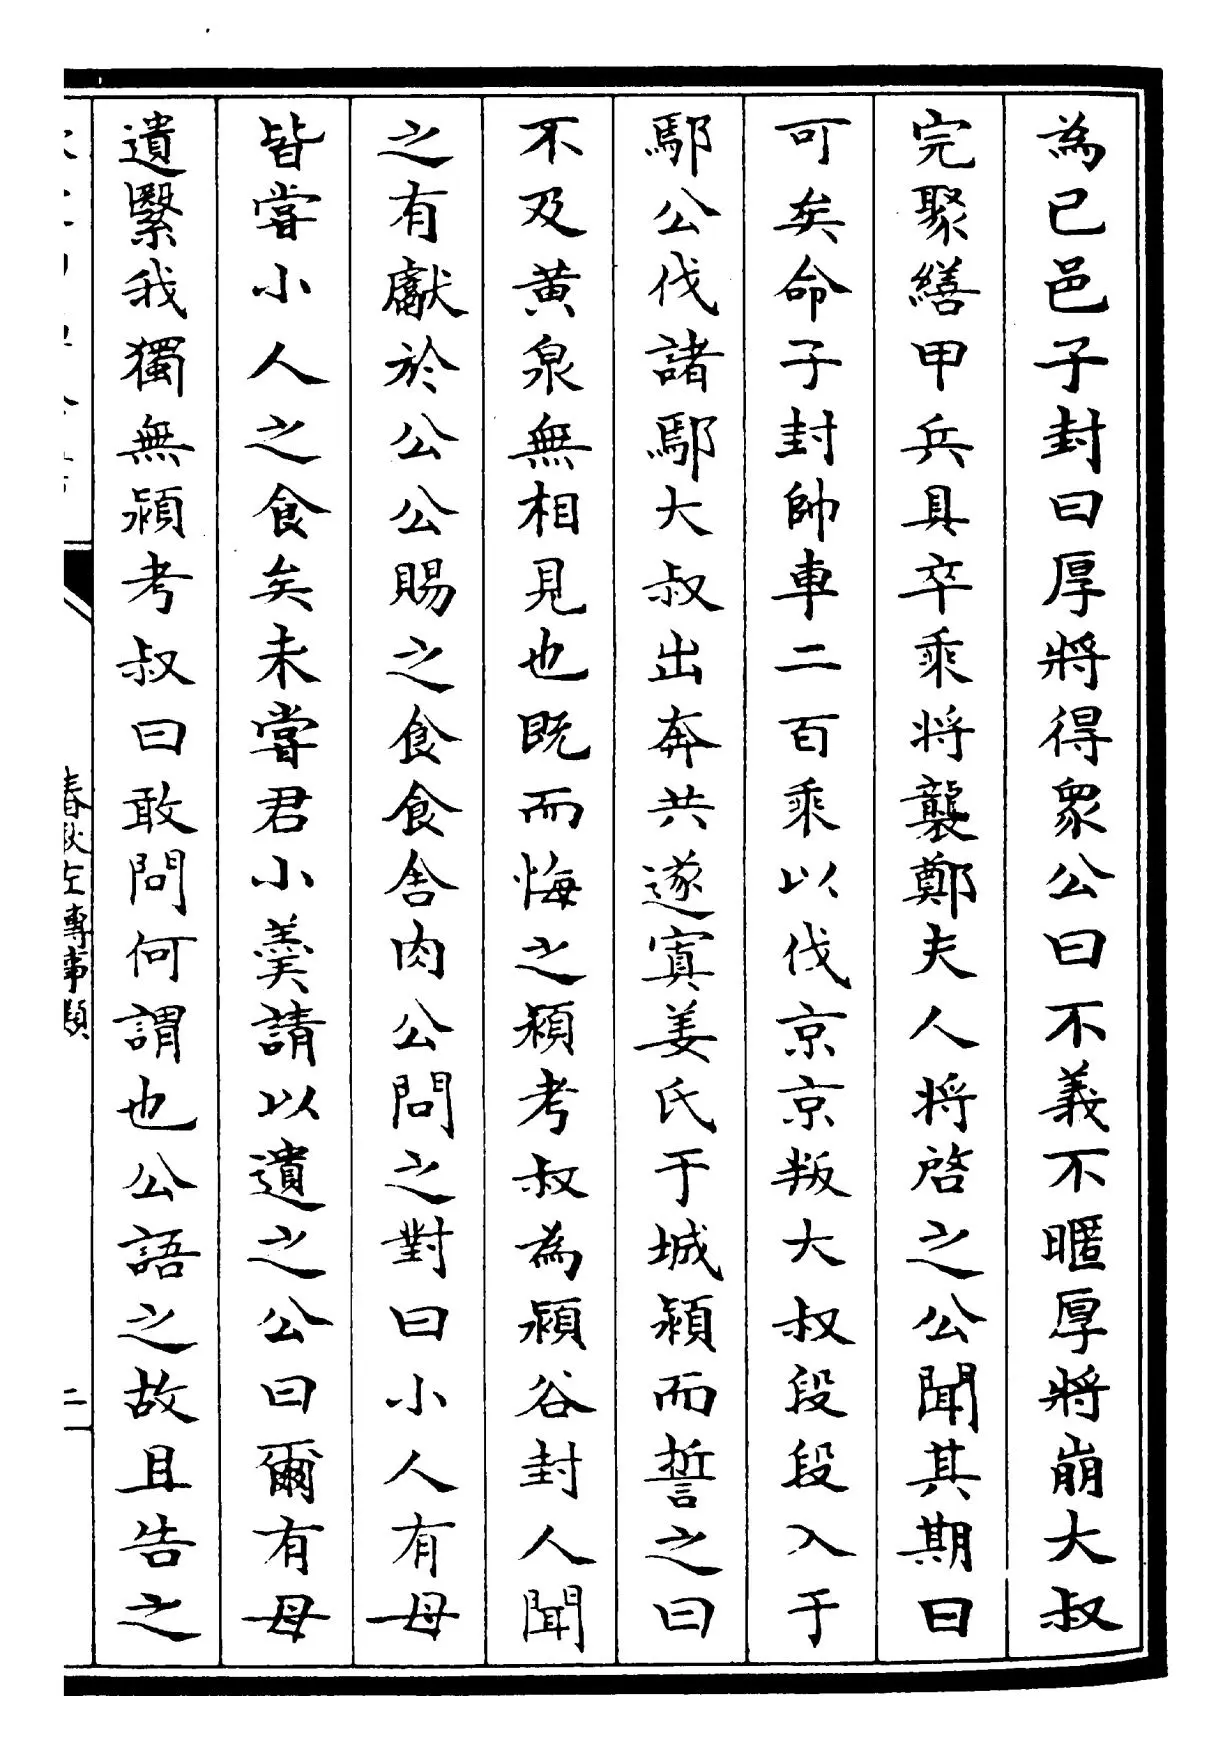 為己邑子封曰厚將得衆公曰不義不暱厚將崩大叔
完聚繕甲兵具卒乘將襲鄭夫人將啓之公聞其期曰
可矣命子封帥車二百乘以伐京京叛大叔段段入于
鄢公伐諸鄢大叔出奔共遂寘姜氏于城潁而誓之曰
不及黄泉無相見也既而悔之潁考叔為潁谷封人聞
之有獻於公公賜之食食舍肉公問之對曰小人有母
皆嘗小人之食矣未嘗君小羹請以遺之公曰爾有母
遺繄我獨無潁考叔曰敢問何謂也公語之故且告之
春秋左傳事類
二